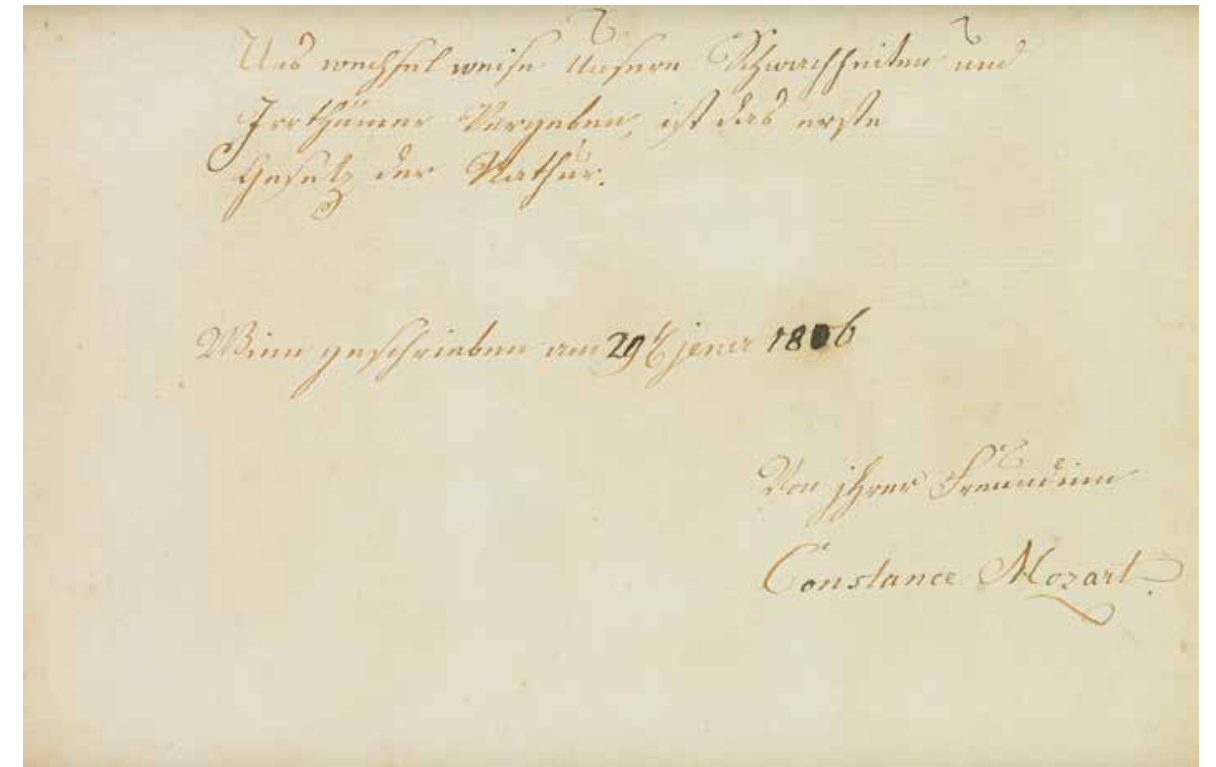 Uns wechselweise Unsere Schwachheiten und
Irrthümer Vergeben, ist das erste
Gesetz der Nathur.
Wien geschrieben am 29t jener 1806
Von jhrer Freundinn
Constance Mozart